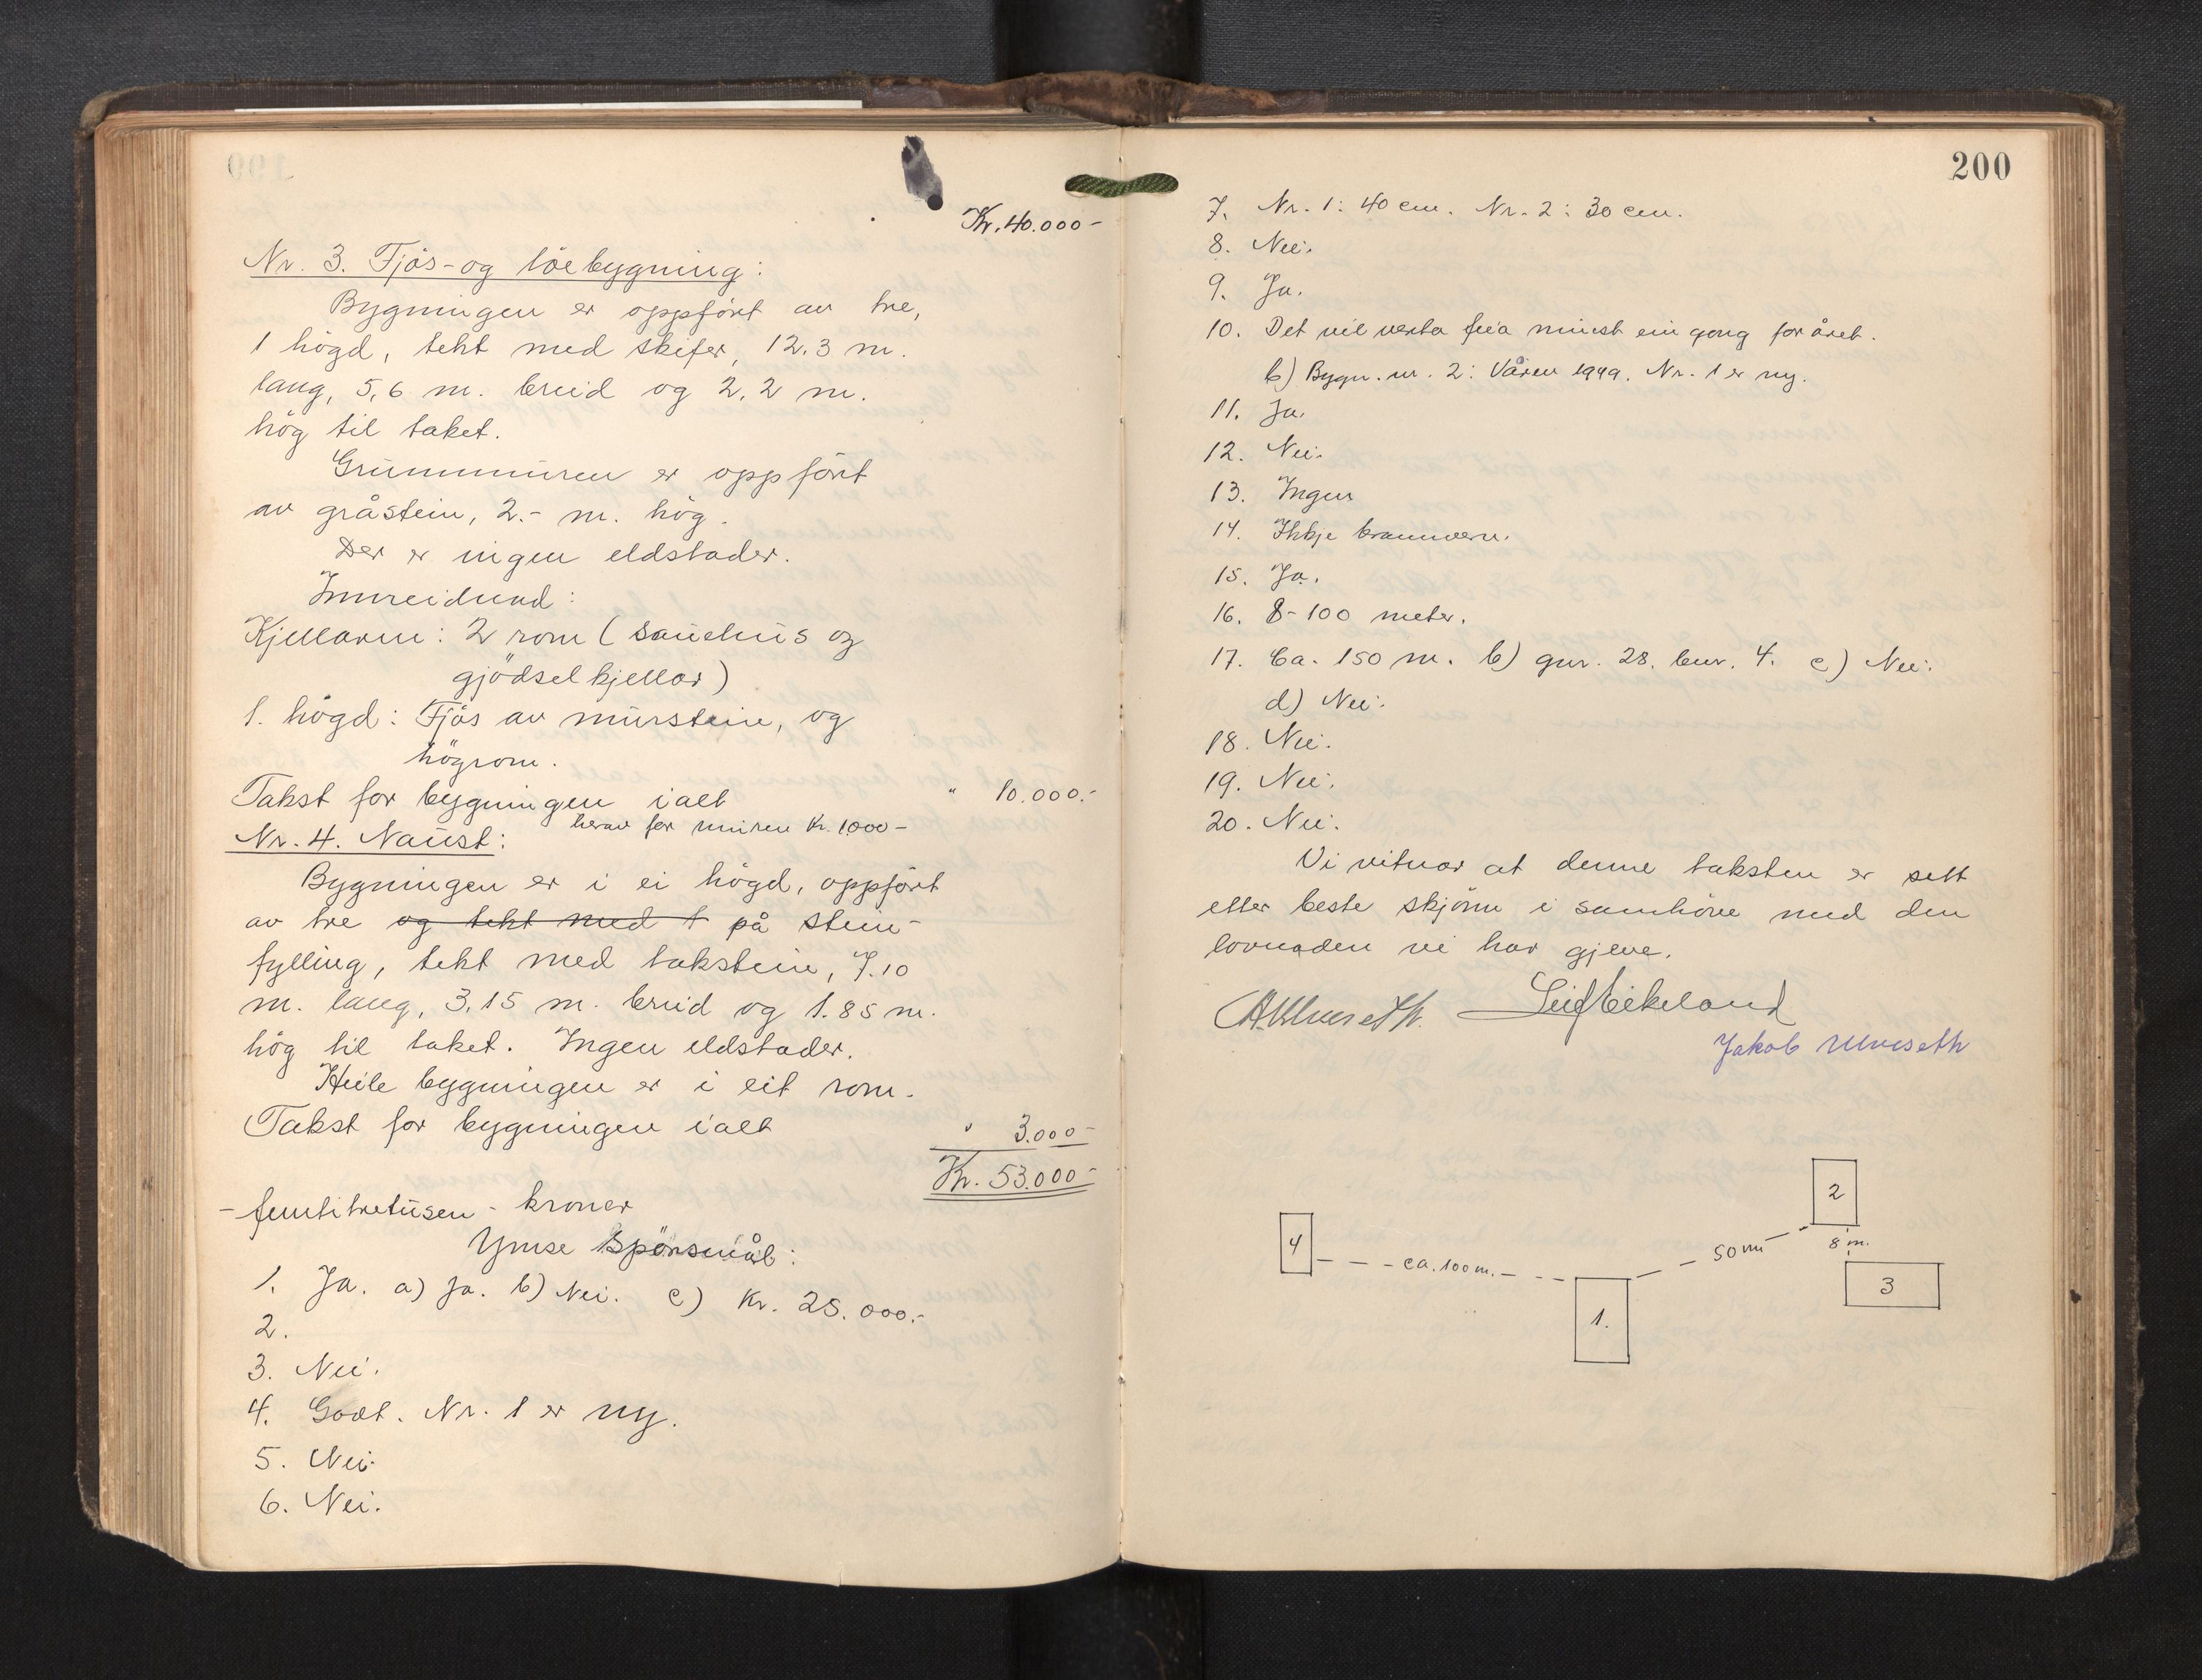 Kr. 40.000-
Nr. 3. Fjös- og löebygning:
Bygningen er oppfört av tre,
1 högd, tekt med skifer, 12.3 m.
lang, 5,6 m. breid og 2,2 m.
hög til taket.
Grunnmuren er oppfört
av gråstein, 2.- m. hög.
Der er ingen eldstader.
Innreidnad:
Kjellaren: 2 rom (sauehus og
gjödselkjellar)
1. högd: Fjös av murstein, og
högrom.
Takst for bygningen ialt " 10.000.-
herav for muren Kr. 1000-
Nr. 4. Naust:
Bygningen er i ei högd, oppfört
av tre og tekt med t på stein-
fylling, tekt med takstein, 7.10
m. lang, 3,15 m. breid og 1.85 m.
hög til taket. Ingen eldstader.
Heile bygningen er i eit rom.
Takst for bygningen ialt " 3.000-
Kr. 53.000-
- femtitretusen - kroner
Ymse spörsmål:
1. Ja. a) Ja. b) Nei. c) Kr. 25.000.-
2.
3. Nei.
4. Godt. Nr. 1 er ny.
5. Nei.
6. Nei.
200
7. Nr. 1: 40 cm. Nr. 2: 30 cm.
8. Nei.
9. Ja.
10. Det vil verta feia minst ein gong for året.
b) Bygn. nr. 2: Våren 1949. Nr. 1 er ny.
11. Ja.
12. Nei.
13. Ingen
14. Ikkje brannvern.
15. Ja.
16. 8-100 meter.
17. Ca. 150 m. b) gnr. 28. bnr. 4. c) Nei.
d) Nei.
18. Nei.
19. Nei.
20. Nei.
Vi vitnar at denne taksten er sett
etter beste skjönn i samhöve med den
lovnaden vi har gjeve.
Leif Eikeland
Jakob Ulveseth
2
8 m.
50 m
4
ca. 100 m.
3
1.